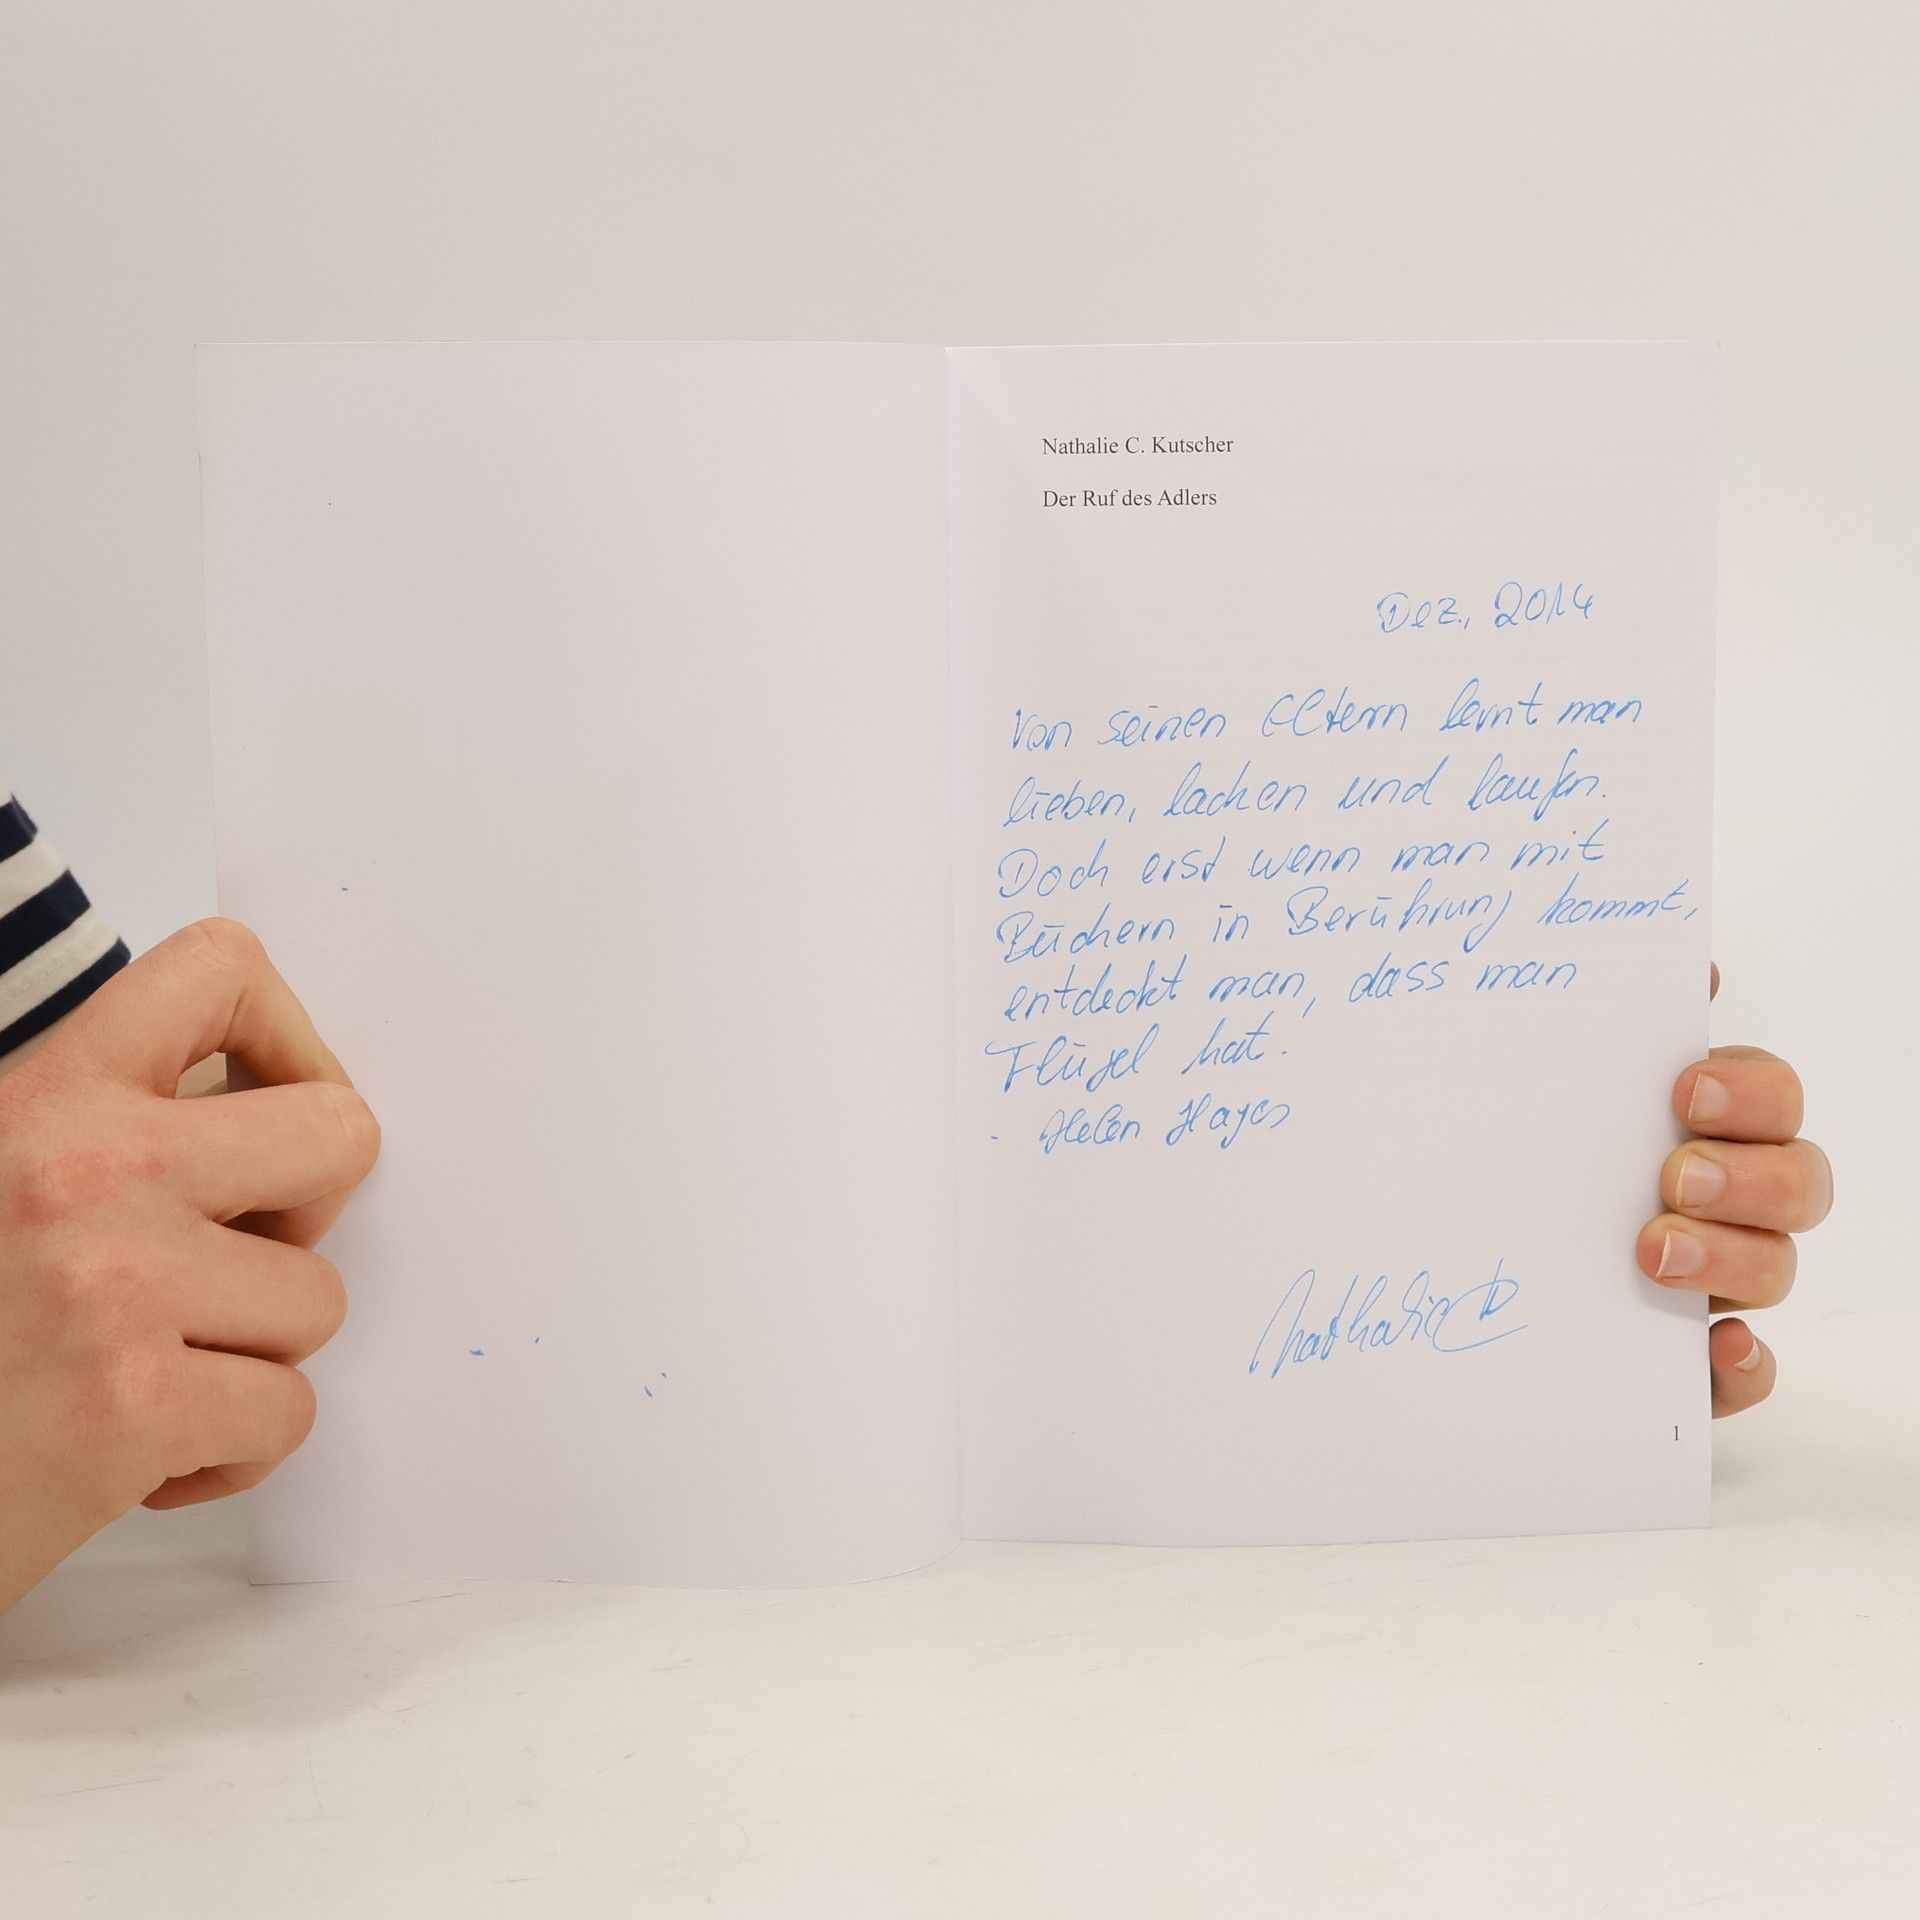 Nathalie C. Kutscher
Der Ruf des Adlers
Dez., 2014
Von seinen Eltern lernt man
lieben, lachen und laufen.
Doch erst wenn man mit
Büchern in Berührung kommt,
entdeckt man, dass man
Flügel hat.
- Helen Hayes
Nathalie
1